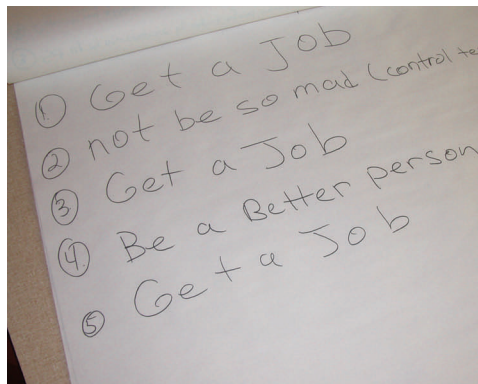 ① Get a Job
② not be so mad (control te
③ Get a Job
④ Be a Better person
⑤ Get a Job